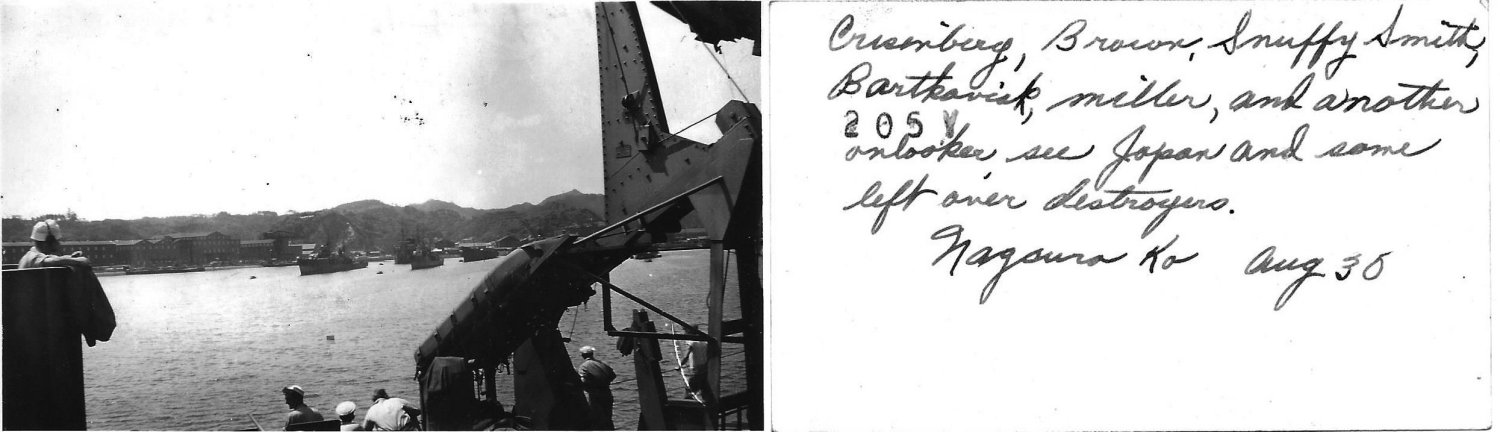 Crusenberg, Brown, Snuffy Smith,
Bartkoviak, miller, and another
205Y
onlooker see Japan and some
left over destroyers.
Nagsura Ko Aug 30